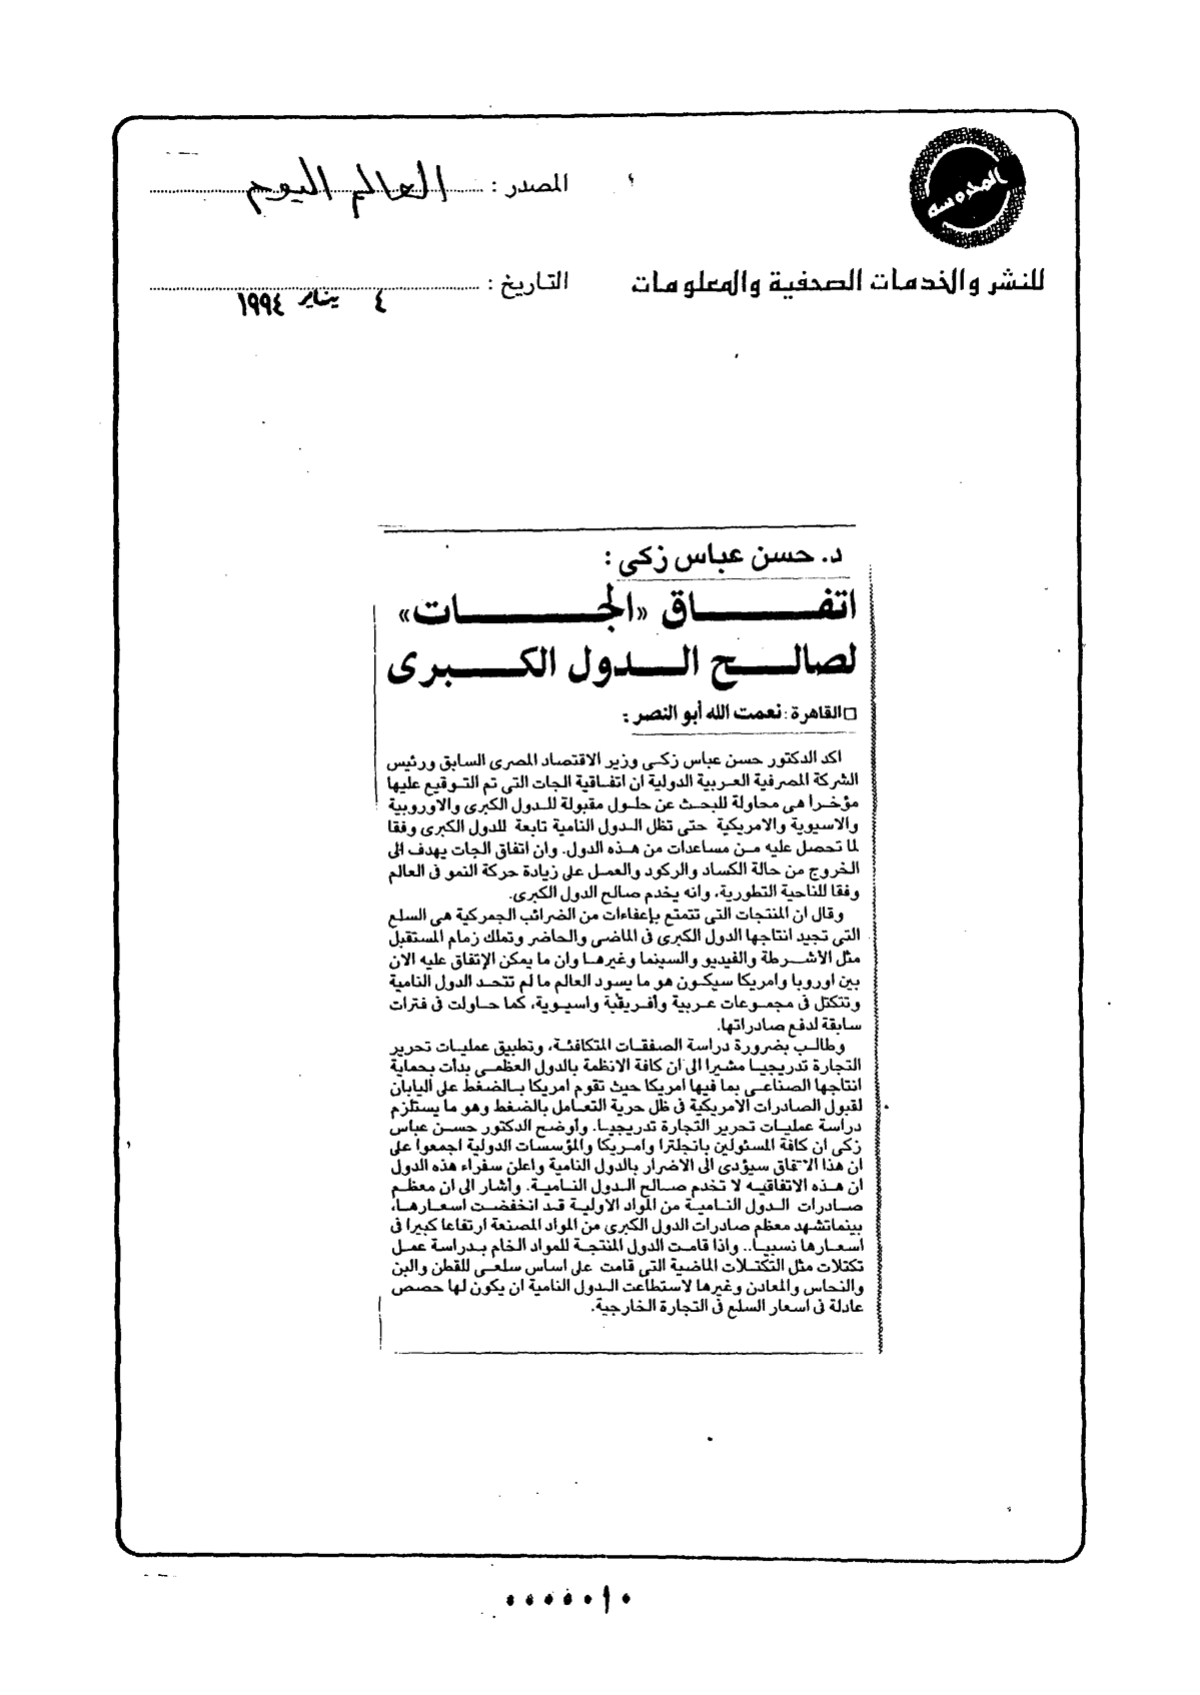 المحروسة
للنشر والخدمات الصحفية والمعلومات
المصدر : العالم اليوم
التاريخ : ٤ يناير ١٩٩٤
د. حسن عباس زكى :
اتفـــاق «الجـــات»
لصالـــح الـــدول الكـــبرى
□ القاهرة : نعمت الله أبو النصر :
اكد الدكتور حسن عباس زكى وزير الاقتصاد المصرى السابق ورئيس
الشركة المصرفية العربية الدولية ان اتفاقية الجات التى تم التوقيع عليها
مؤخرا هى محاولة للبحث عن حلول مقبولة للدول الكبرى والاوروبية
والاسيوية والامريكية حتى تظل الدول النامية تابعة للدول الكبرى وفقا
لما تحصل عليه من مساعدات من هذه الدول. وان اتفاق الجات يهدف الى
الخروج من حالة الكساد والركود والعمل على زيادة حركة النمو فى العالم
وفقا للناحية التطورية، وانه يخدم صالح الدول الكبرى.
وقال ان المنتجات التى تتمتع بإعفاءات من الضرائب الجمركية هى السلع
التى تجيد انتاجها الدول الكبرى فى الماضى والحاضر وتملك زمام المستقبل
مثل الأشرطة والفيديو والسينما وغيرها وان ما يمكن الإتفاق عليه الان
بين اوروبا وامريكا سيكون هو ما يسود العالم ما لم تتحد الدول النامية
وتتكتل فى مجموعات عربية وأفريقية واسيوية، كما حاولت فى فترات
سابقة لدفع صادراتها.
وطالب بضرورة دراسة الصفقات المتكافئة، وتطبيق عمليات تحرير
التجارة تدريجيا مشيرا الى ان كافة الانظمة بالدول العظمى بدأت بحماية
انتاجها الصناعى بما فيها امريكا حيث تقوم امريكا بالضغط على اليابان
لقبول الصادرات الأمريكية فى ظل حرية التعامل بالضغط وهو ما يستلزم
دراسة عمليات تحرير التجارة تدريجيا. وأوضح الدكتور حسن عباس
زكى ان كافة المسئولين بانجلترا وامريكا والمؤسسات الدولية اجمعوا على
ان هذا الاتفاق سيؤدى الى الاضرار بالدول النامية واعلن سفراء هذه الدول
ان هذه الاتفاقيه لا تخدم صالح الدول النامية. وأشار الى ان معظم
صادرات الدول النامية من المواد الاولية قد انخفضت اسعارها،
بينماتشهد معظم صادرات الدول الكبرى من المواد المصنعة ارتفاعا كبيرا فى
اسعارها نسبيا.. واذا قامت الدول المنتجة للمواد الخام بدراسة عمل
تكتلات مثل التكتلات الماضية التى قامت على اساس سلعى للقطن والبن
والنحاس والمعادن وغيرها لاستطاعت الدول النامية ان يكون لها حصص
عادلة فى اسعار السلع فى التجارة الخارجية.
٠٠٠٠٠١٠